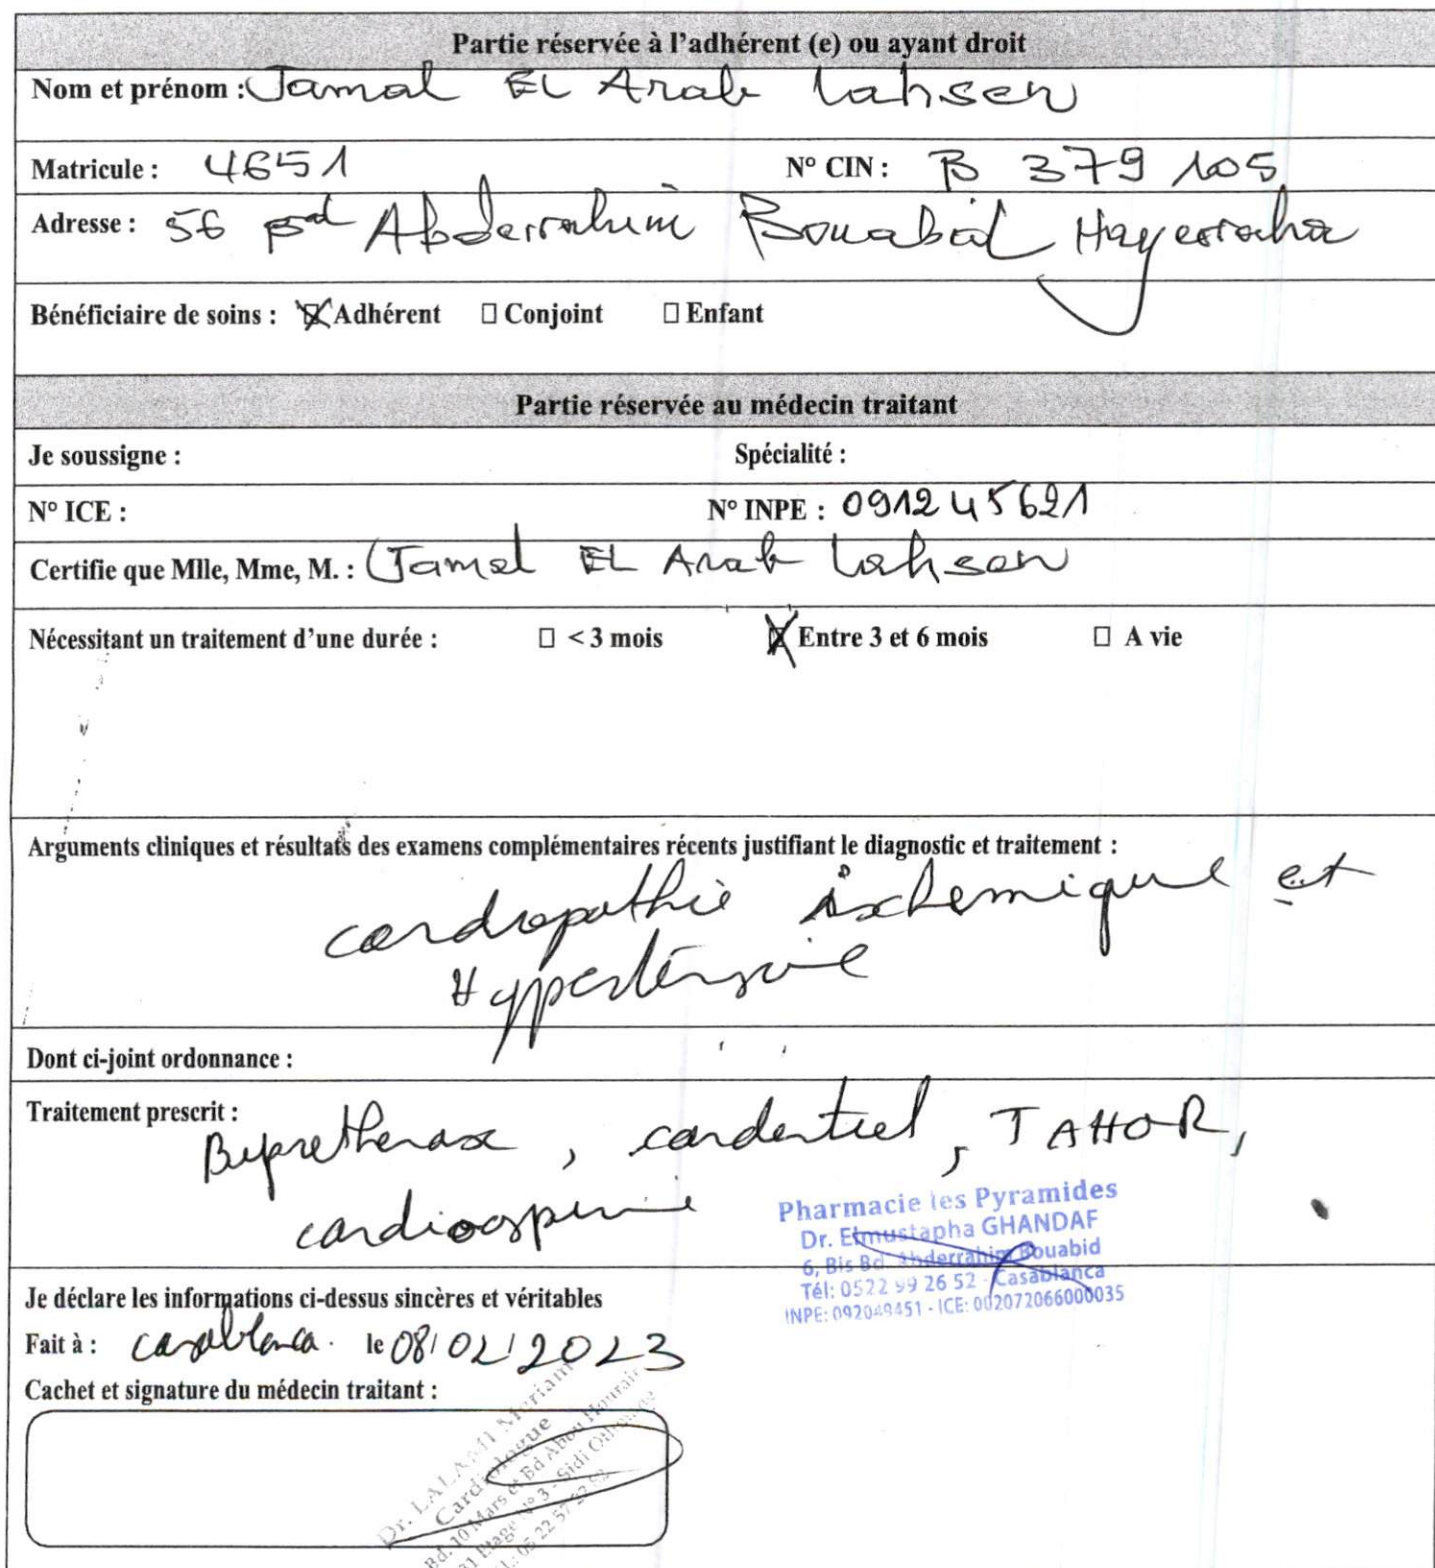 Partie réservée à l'adhérent (e) ou ayant droit
Nom et prénom : Jamal EL Arab Lahsen
Matricule : 4651 N° CIN : B 379 105
Adresse : 56 Bd Abderrahim Bouabid Hayerraha
Bénéficiaire de soins : ☒ Adhérent □ Conjoint □ Enfant
Partie réservée au médecin traitant
Je soussigne : Spécialité :
N° ICE : N° INPE : 091245621
Certifie que Mlle, Mme, M. : Jamal EL Arab Lahsen
Nécessitant un traitement d'une durée : □ < 3 mois ☒ Entre 3 et 6 mois □ A vie
Arguments cliniques et résultats des examens complémentaires récents justifiant le diagnostic et traitement :
cardiopathie ischemique et
Hypertensive
Dont ci-joint ordonnance :
Traitement prescrit :
, cardensiel, TAHOR,
cardioaspirine
Pharmacie les Pyramides
Dr. Elmustapha GHANDAF
6, Bis Bd. Abderrahim Bouabid
Tél: 0522 99 26 52 - Casablanca
INPE: 092049451 - ICE: 002072066000035
Je déclare les informations ci-dessus sincères et véritables
Fait à : casablanca. le 08/02/2023
Cachet et signature du médecin traitant :
Dr. LALAMI Meriam
Cardiologue
Bd. 10 Mars et Bd Abou Hourair
Etage N° 3 - Sidi
05 22 57